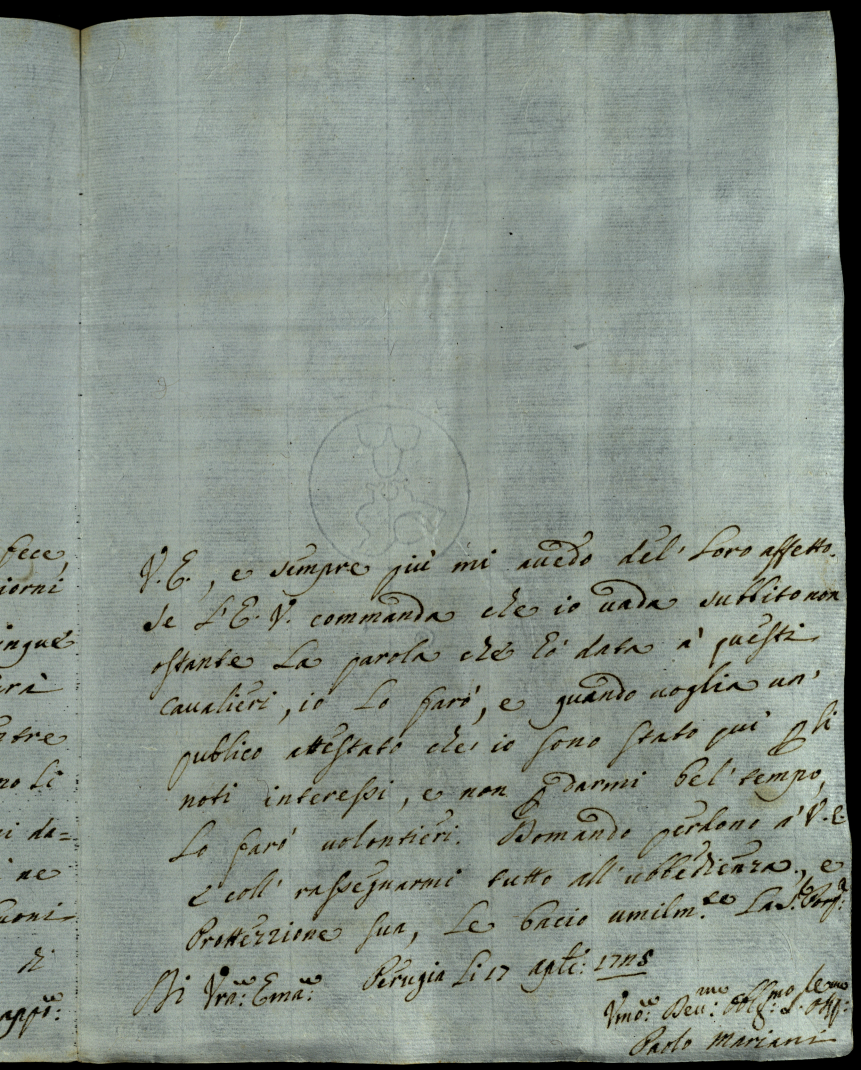 fece,
iorni
ingue
arà
ntre
no li
ni da=
ne
uoni
di
V. E., e sempre più mi auedo del' Loro affetto.
Se L'E. V. commanda che io uada subbito non
ostante La parola che hò data a' questi
Caualieri, io Lo farò, e quando uoglia un'
publico attestato che io sono stato qui p li
noti interessi, e non p darmi bel' tempo,
Lo farò uolontieri. Domando perdono a' V. E
e coll' rassegnarmi tutto all' ubbedienza, e
Prottezzione sua, Le bacio umilm.te La S. Porp.a
Di Vra: Ema: Perugia Li 17 aple: 1745
Vmo: Deu:mo obblmo Se
Paolo Mariani